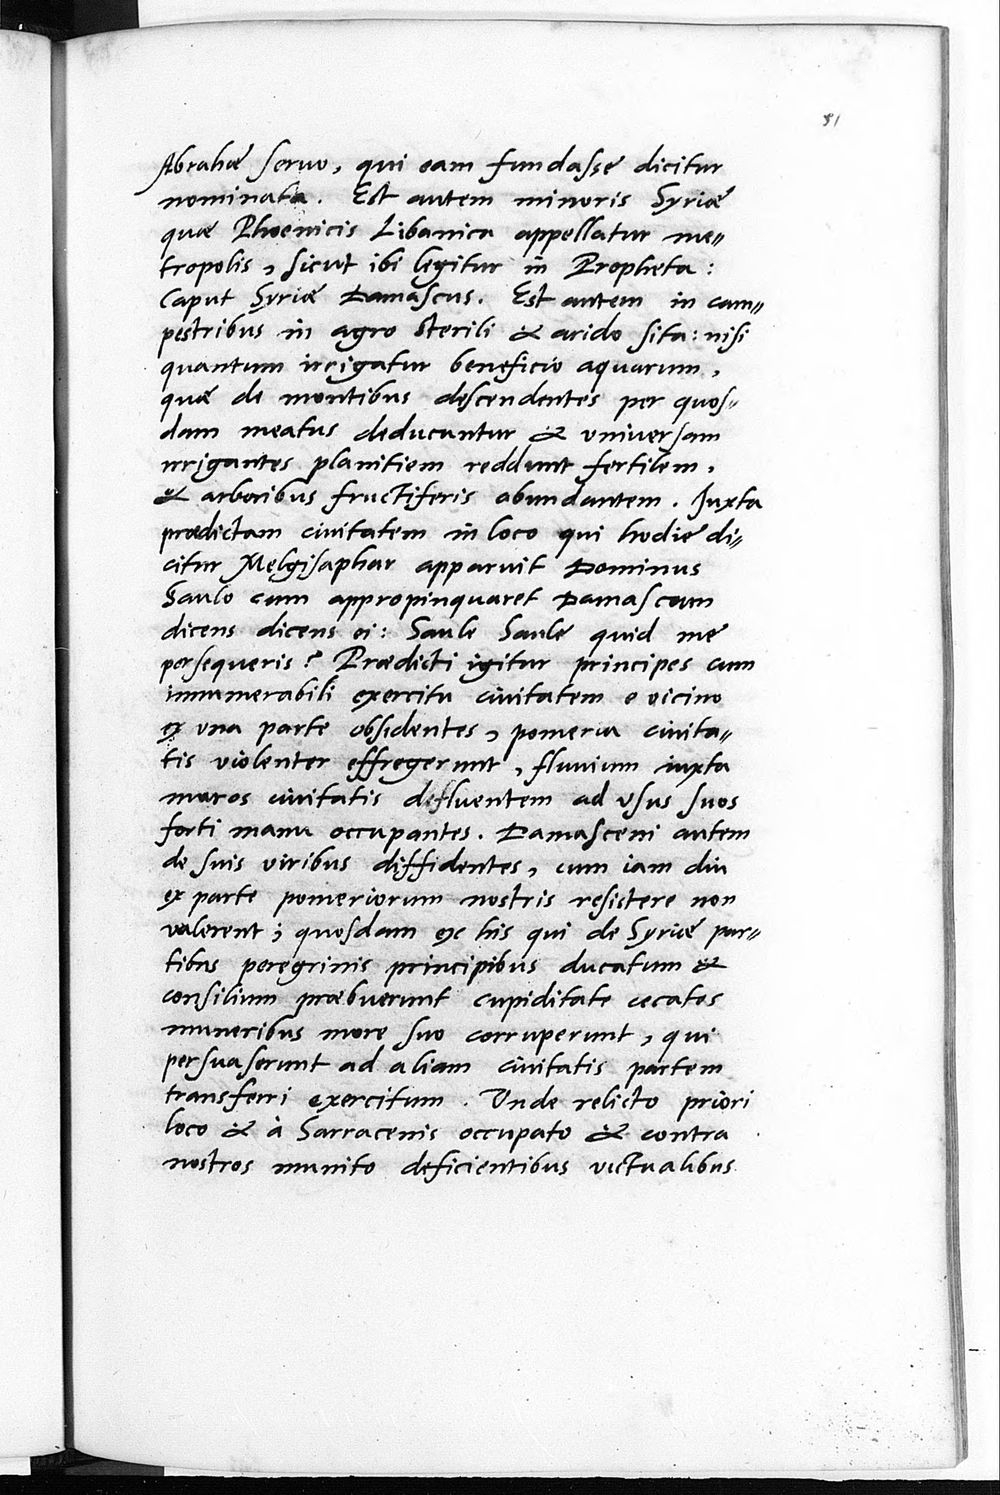 81
Abrahæ servo, qui eam fundasse dicitur
nominata. Est autem minoris Syriæ
quæ Phoenicis Libanica appellatur me-
tropolis, sicut ibi legitur in Propheta:
Caput Syriæ Damascus. Est autem in cam-
pestribus in agro sterili & arido sita: nisi
quantum irrigatur beneficio aquarum,
quæ de montibus descendentes per quos-
dam meatus deducuntur & universam
irrigantes planitiem reddunt fertilem,
& arboribus fructiferis abundantem. Juxta
prædictam civitatem in loco qui hodie di-
citur Melgisaphar apparuit Dominus
Saulo cum appropinquaret Damascum
dicens dicens ei: Saule Saule quid me
persequeris? Prædicti igitur principes cum
innumerabili exercitu civitatem e vicino
ex una parte obsidentes, pomeria civita-
tis violenter effregerunt, fluvium iuxta
muros civitatis defluentem ad vsus suos
forti manu occupantes. Damasceni autem
de suis viribus diffidentes, cum iam diu
ex parte pomeriorum nostris resistere non
valerent; quosdam ex his qui de Syriæ par-
tibus peregrinis principibus ducatum &
consilium præbuerunt cupiditate cecatos
muneribus more suo corruperunt, qui
persuaserunt ad aliam civitatis partem
transferri exercitum. Unde relicto priori
loco & à Sarracenis occupato & contra
nostros munito deficientibus victualibus